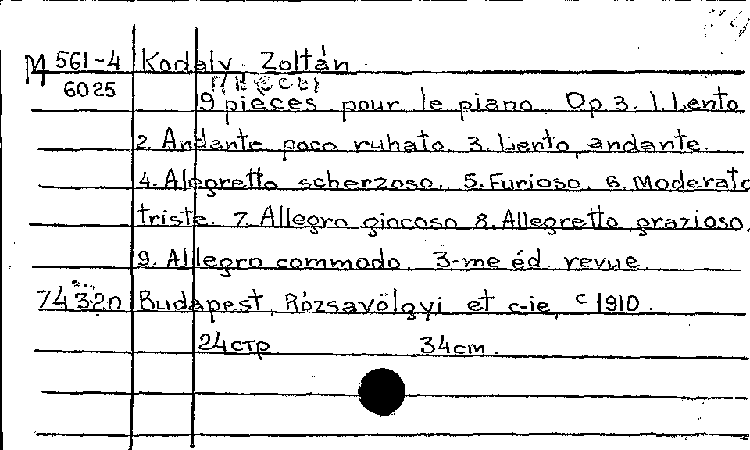 M 561-4 Kodaly Zoltán
6025
9 pieces pour le piano. Op 3. 1. Lento
2. Andante poco rubato. 3. Lento, andante.
4. Alegretto scherzoso. 5. Furioso. 6. Moderato
triste. 7. Allegro giocoso 8. Allegretto grazioso.
9. Allegro commodo. 3-me éd revue.
7432n Budapest, Rózsavölgyi et c-ie, c 1910.
24 стр 34 cm.